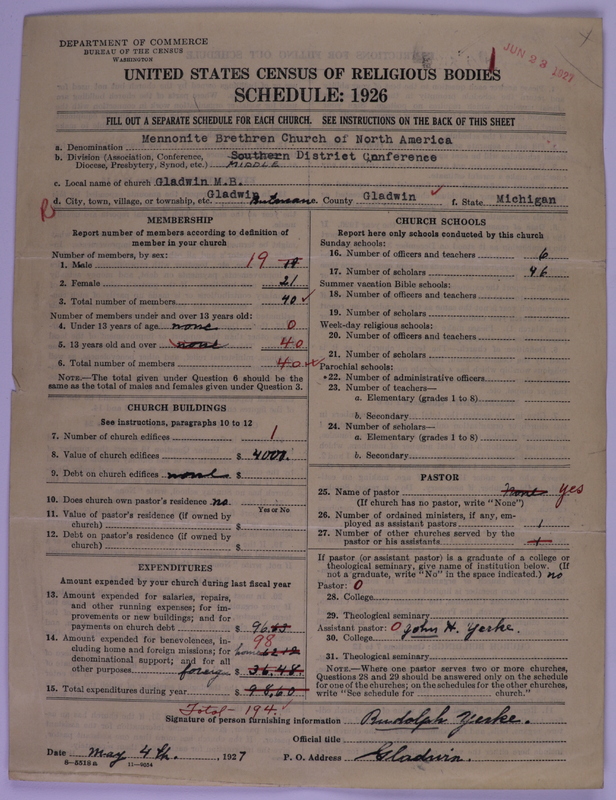 DEPARTMENT OF COMMERCE
BUREAU OF THE CENSUS
WASHINGTON
JUN 23 1927
UNITED STATES CENSUS OF RELIGIOUS BODIES
SCHEDULE: 1926
FILL OUT A SEPARATE SCHEDULE FOR EACH CHURCH. SEE INSTRUCTIONS ON THE BACK OF THIS SHEET
a. Denomination Mennonite Brethren Church of North America
b. Division (Association, Conference, Diocese, Presbytery, Synod, etc.) Southern District Conference
MIDDLE
c. Local name of church Gladwin M.B.
d. City, town, village, or township, etc. Gladwin County Gladwin f. State Michigan
MEMBERSHIP
Report number of members according to definition of
member in your church
Number of members, by sex:
1. Male 19 18
2. Female 21
3. Total number of members 40
Number of members under and over 13 years old:
4. Under 13 years of age none 0
5. 13 years old and over none 40
6. Total number of members 40
NOTE.—The total given under Question 6 should be the
same as the total of males and females given under Question 3.
CHURCH BUILDINGS
See instructions, paragraphs 10 to 12
7. Number of church edifices 1
8. Value of church edifices $ 4000.
9. Debt on church edifices none $
10. Does church own pastor's residence no.
Yes or No
11. Value of pastor's residence (if owned by
church) $
12. Debt on pastor's residence (if owned by
church) $
EXPENDITURES
Amount expended by your church during last fiscal year
13. Amount expended for salaries, repairs,
and other running expenses; for im-
provements or new buildings; and for
payments on church debt $ 96.
14. Amount expended for benevolences, in- 98
cluding home and foreign missions; for home
denominational support; and for all
other purposes foreig $ 36.48
15. Total expenditures during year $ 98,60
Total - 194.
CHURCH SCHOOLS
Report here only schools conducted by this church
Sunday schools:
16. Number of officers and teachers 6
17. Number of scholars 46
Summer vacation Bible schools:
18. Number of officers and teachers
19. Number of scholars
Week-day religious schools:
20. Number of officers and teachers
21. Number of scholars
Parochial schools:
22. Number of administrative officers
23. Number of teachers—
a. Elementary (grades 1 to 8)
b. Secondary
24. Number of scholars—
a. Elementary (grades 1 to 8)
b. Secondary
PASTOR
25. Name of pastor None yes
(If church has no pastor, write "None")
26. Number of ordained ministers, if any, em-
ployed as assistant pastors 1
27. Number of other churches served by the
pastor or his assistants 1
If pastor (or assistant pastor) is a graduate of a college or
theological seminary, give name of institution below. (If
not a graduate, write "No" in the space indicated.) no
Pastor: 0
28. College
29. Theological seminary
Assistant pastor: 0 John H. Yerke.
30. College
31. Theological seminary
NOTE.—Where one pastor serves two or more churches,
Questions 28 and 29 should be answered only on the schedule
for one of the churches; on the schedules for the other churches,
write "See schedule for church."
Signature of person furnishing information Rudolph Yerke.
Official title
Date May 4th., 1927 P. O. Address Gladwin.
8-5518a 11-9054